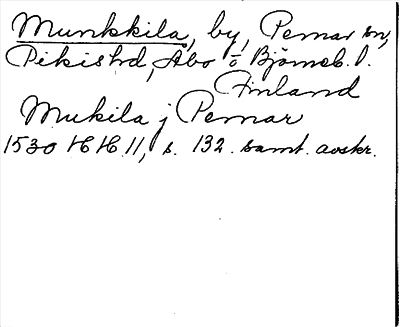 Munkkila, by, Pemar sn,
Pikis hd, Åbo o Björneb. l.
Finland
Mukila j Pemar
1530 HH 11, s. 132. samt. avskr.